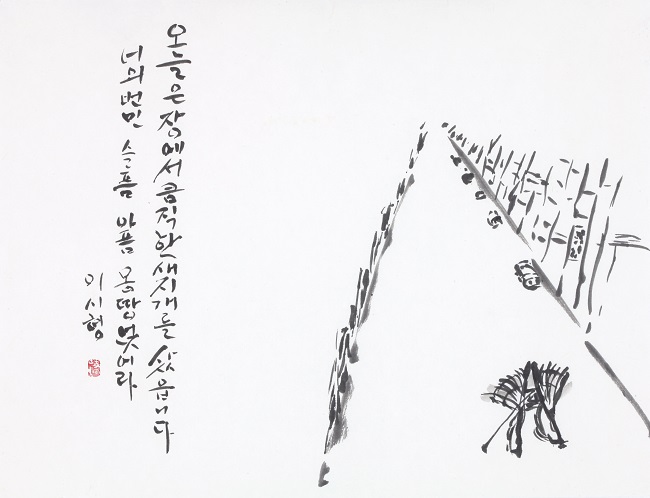 오늘은 장에서 큼직한 새지개를 샀읍니다
너의 번민 슬픔 아픔 몽땅
이시형